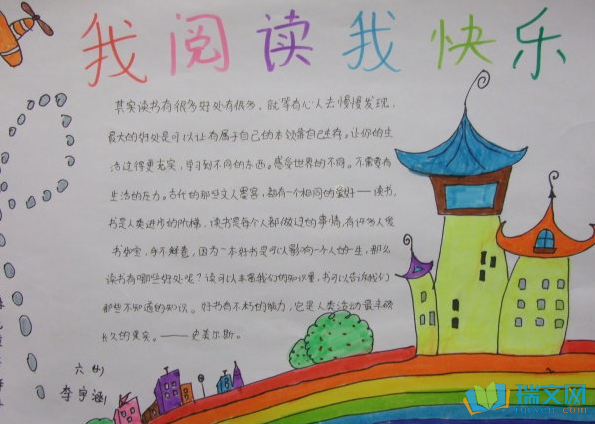 我阅读我快乐
其实读书有很多好处有很多，就等有心人去慢慢发现，
最大的好处是可以让有属于自己的本领靠自己生存。让你的生
活过得更充实，学习到不同的东西。感受世界的不同。不需要有
生活的压力。古代的那些文人墨客，都有个相同的爱好——读书，
书是人类进步的阶梯，读书是每个人都做过的事情，有许多人爱
书如宝，手不释卷，因为一本好书是可以影响一个人的一生，那么
读书有哪些好处呢？读可以丰富我们的知识量，书可以告诉我们
那些不知道的知识。好书有不朽的能力，它是人类活动最丰硕
长久的果实。——史美尔斯。
六(4)
李宇涵
瑞文网